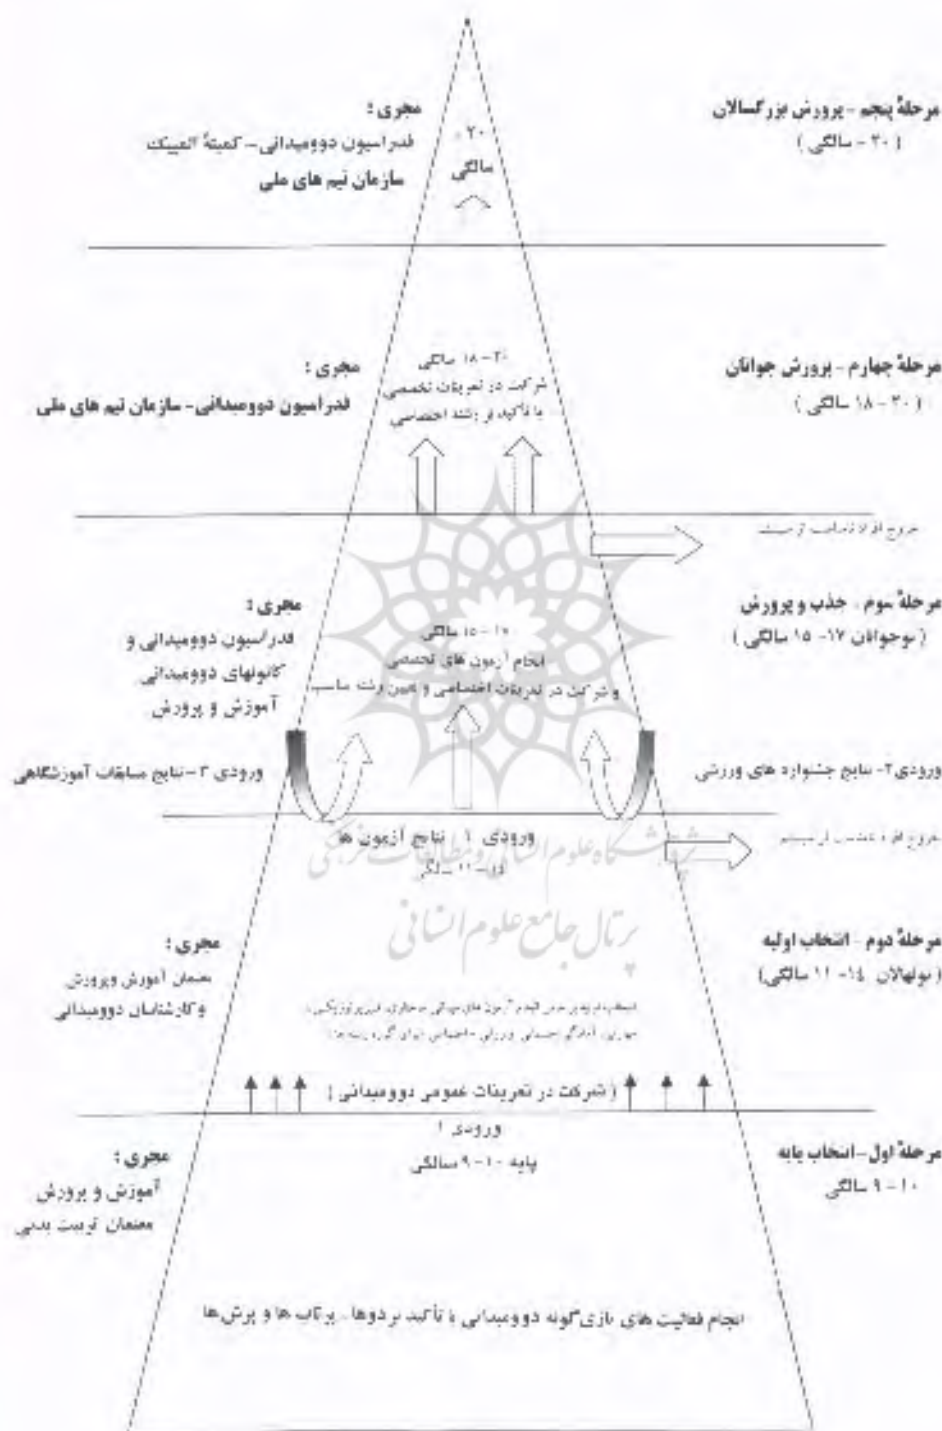 مرحلهٔ پنجم - پرورش بزرگسالان
( ۲۰ - سالگی )
۲۰ -
سالگی
مجری :
فدراسیون دوومیدانی - کمیتهٔ المپیک
سازمان تیم های ملی
مرحلهٔ چهارم - پرورش جوانان
( ۲۰ - ۱۸ سالگی )
۲۰ - ۱۸ سالگی
شرکت در تمرینات تخصصی
با تأکید بر رشته اختصاصی
مجری :
فدراسیون دوومیدانی - سازمان تیم های ملی
خروج افراد نامناسب از سیستم
مرحلهٔ سوم - جذب و پرورش
( نوجوانان ۱۷ - ۱۵ سالگی )
۱۷ - ۱۵ سالگی
انجام آزمون های تخصصی
و شرکت در تمرینات اختصاصی و تعیین رشته مناسب
مجری :
فدراسیون دوومیدانی و
کانونهای دوومیدانی
آموزش و پرورش
ورودی ۲- نتایج جشنواره های ورزشی
ورودی ۳- نتایج مسابقات آموزشگاهی
ورودی ۱ نتایج آزمون ها
۱۴ - ۱۱ سالگی
خروج افراد از سیستم
پژوهشگاه علوم انسانی و مطالعات فرهنگی
پرتال جامع علوم انسانی
مرحلهٔ دوم - انتخاب اولیه
( نونهالان ۱۴- ۱۱ سالگی)
مجری :
معلمان آموزش وپرورش
وکارشناسان دوومیدانی
( شرکت در تمرینات عمومی دوومیدانی )
ورودی ۱
پایه ۱۰ - ۹ سالگی
مرحلهٔ اول - انتخاب پایه
۱۰ - ۹ سالگی
مجری :
آموزش و پرورش
معلمان تربیت بدنی
انجام فعالیت های بازی گونه دوومیدانی با تأکید بر دوها - پرتاب ها و پرش ها